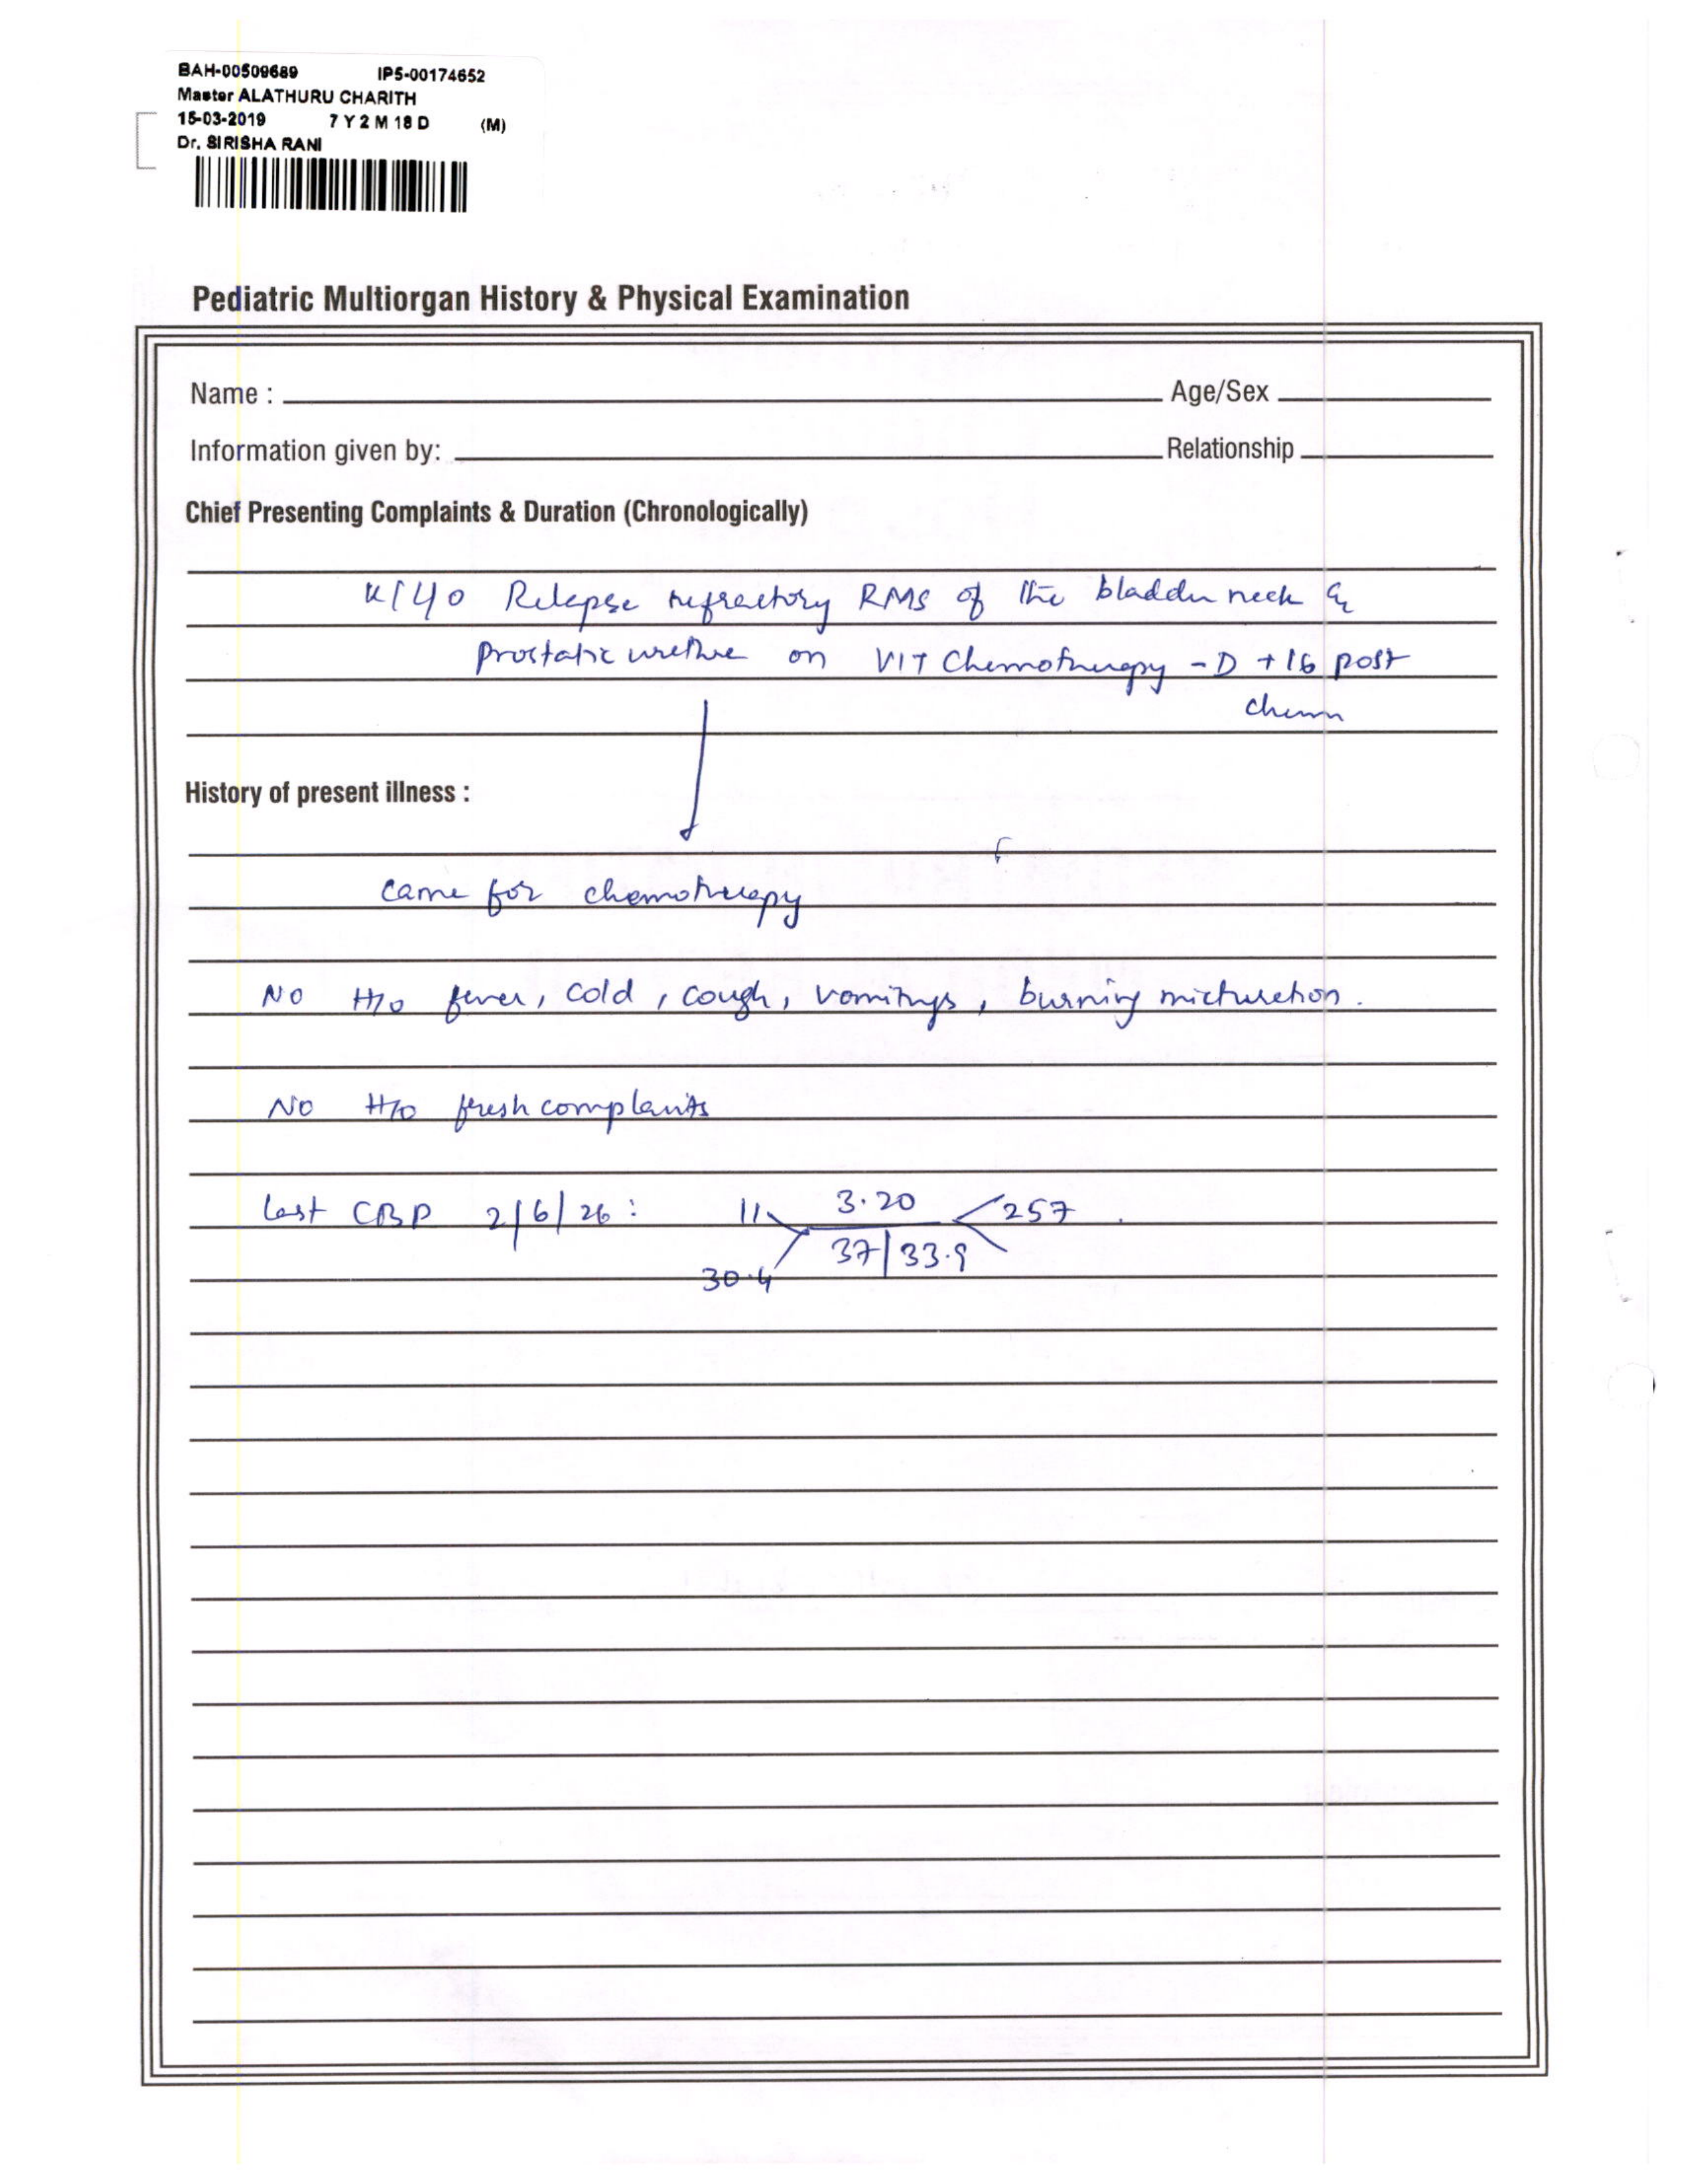 BAH-00509689 IP5-00174652
Master ALATHURU CHARITH
15-03-2019 7 Y 2 M 18 D (M)
Dr. SIRISHA RANI
Pediatric Multiorgan History & Physical Examination
Name : Age/Sex
Information given by: Relationship
Chief Presenting Complaints & Duration (Chronologically)
Relapse refractory RMS of the bladder neck &
Prostatic urethra on VIT Chemotherapy - D +16 post
chemo
History of present illness :
came for chemotherapy
No H/o fever, cold, cough, vomitings, burning micturetion.
No H/o fresh complaints
last CBP 2/6/26: 11 3.20 257
30.4 37 | 33.9